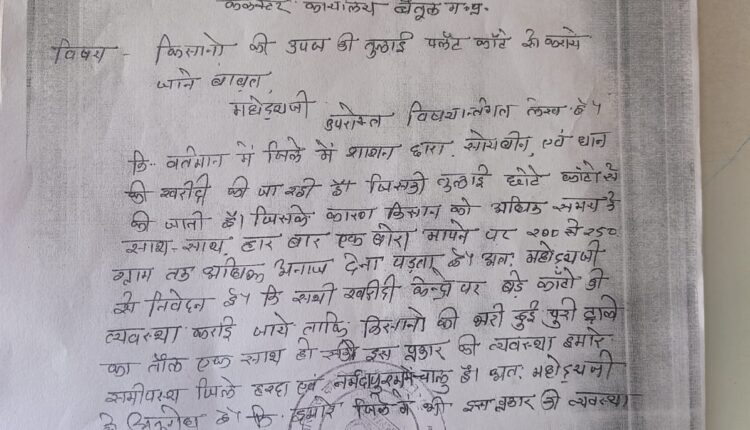 कलेक्टर कार्यालय बैतूल म.प्र.
विषय - किसानो की उपज की तुलाई प्लेट काँटे से कराये
जाने बाबत,
महोदयजी उपरोक्त विषयान्तर्गत लेख है
कि वर्तमान में जिले में शासन द्वारा सोयाबीन, एवं धान
की खरीदी की जा रही है। जिसकी तुलाई छोटे काँटो से
की जाती है। जिसके कारण किसान को अधिक समय के
साथ-साथ, हार बार एक बोरा मापने पर 200 से 250
ग्राम तक अधिक अनाज देना पड़ता है। अतः महोदयजी
से निवेदन है कि सभी खरीदी केन्द्रो पर बड़े काँटो की
व्यवस्था कराई जाये ताकि किसानो की भरी हुई पुरी ट्राले
का तौल एक साथ हो सके इस प्रकार की व्यवस्था हमारे
समीपस्थ जिले हरदा एवं नर्मदापुरम में चालु है। अतः महोदयजी
से अनुरोध है कि हमारे जिले में भी इस प्रकार की व्यवस्था